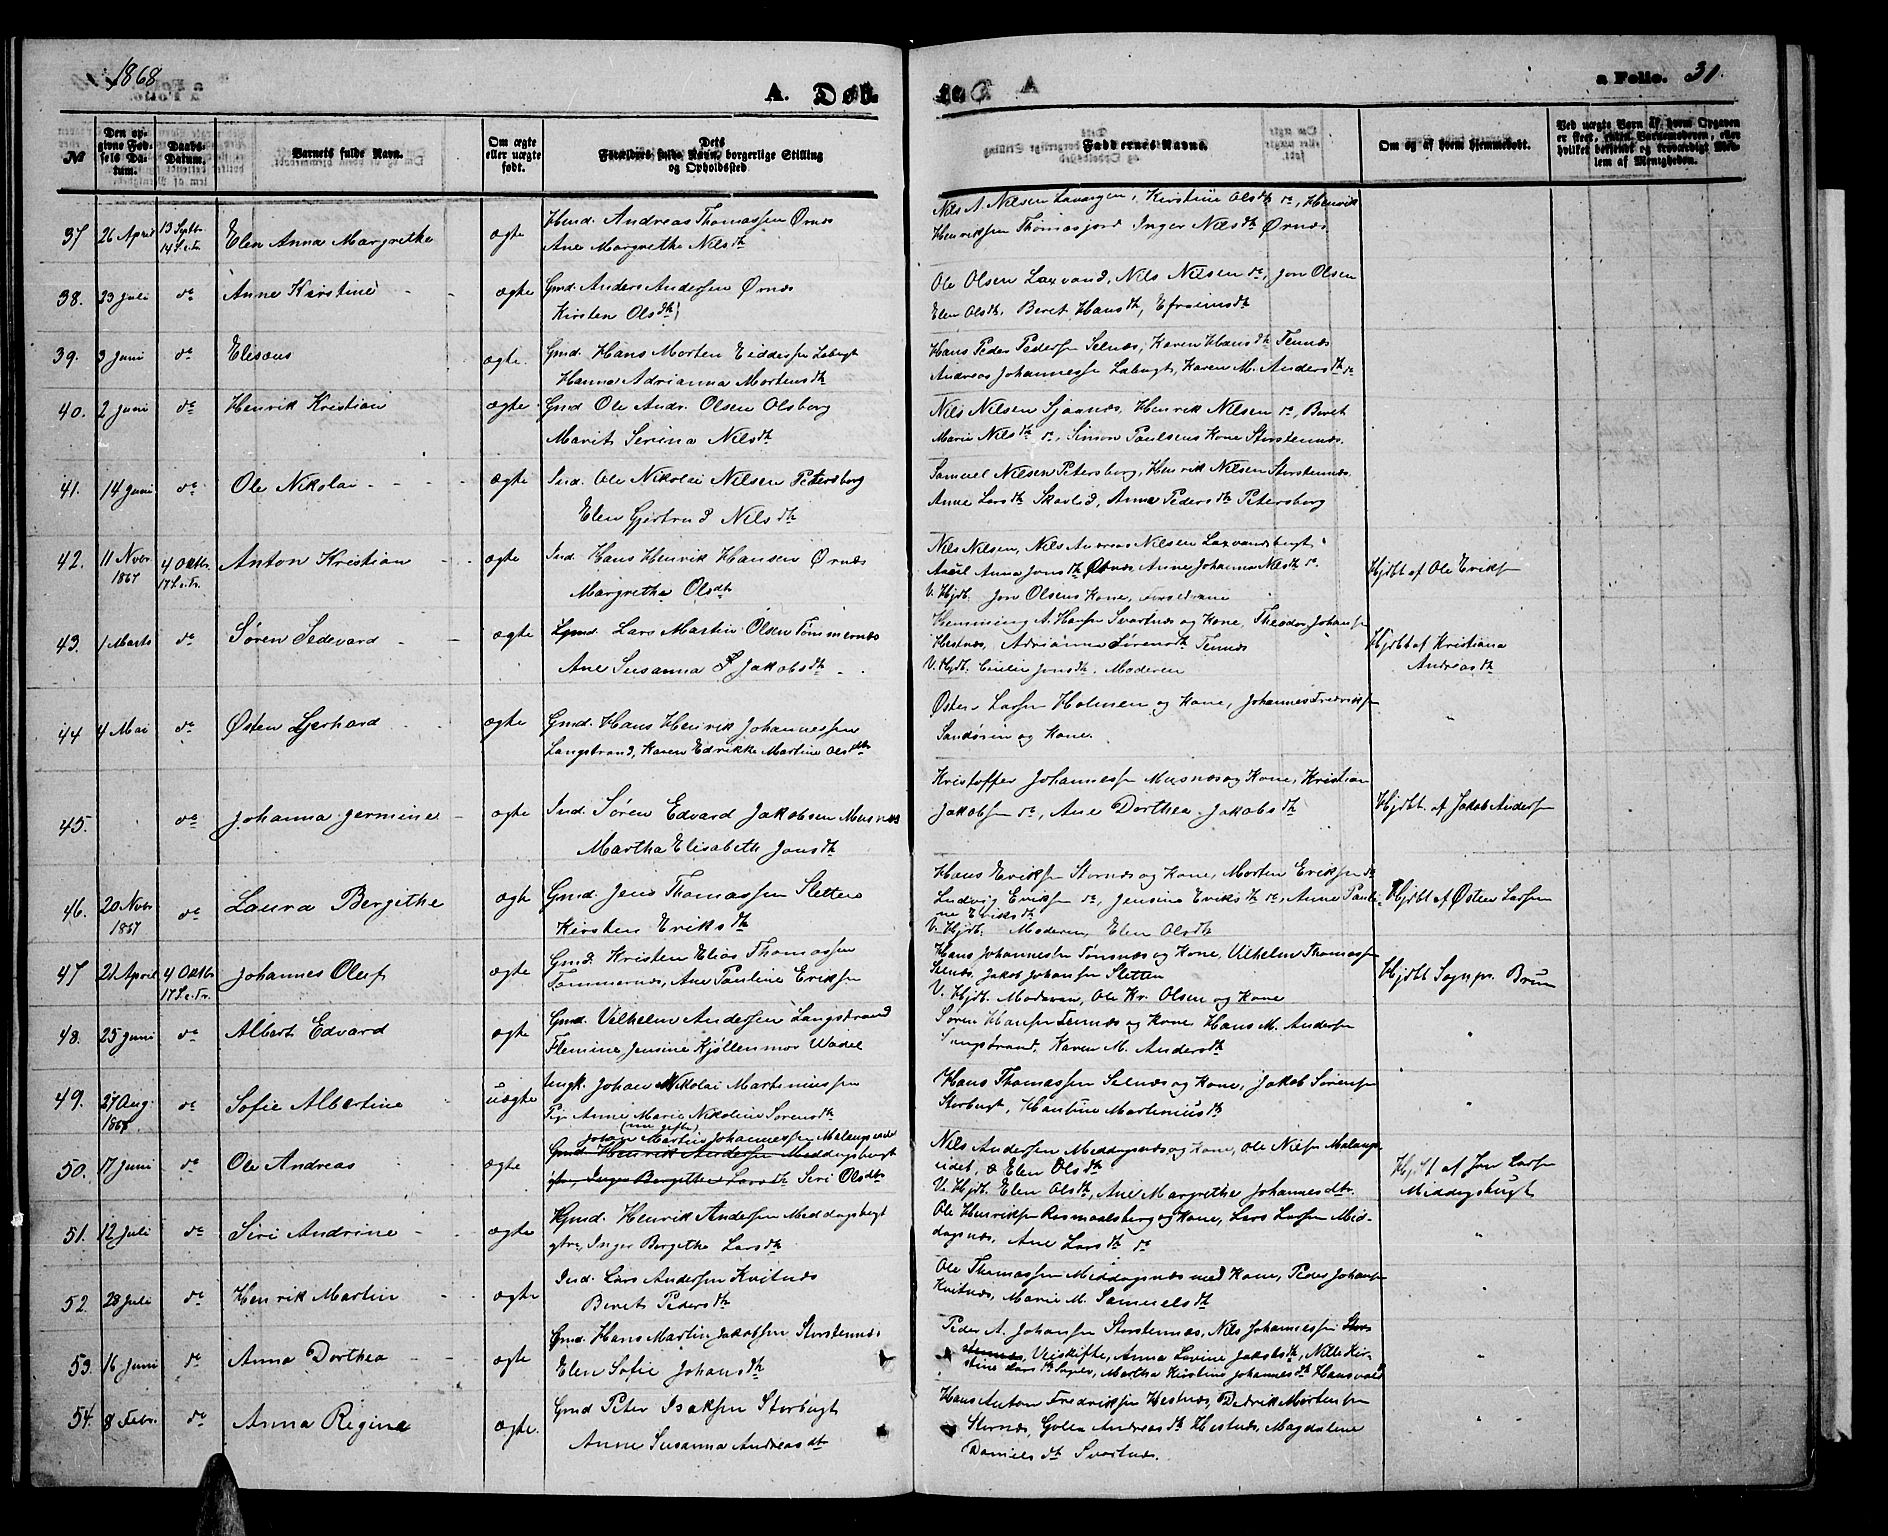 1868
A. Døb
a Folio. 31.
No
Den opgivne Fødsels Datum.
Daabs-Datum.
Barnets fulde Navn.
Om ægte eller uægte født.
Dets Forældres fulde Navn, borgerlige Stilling og Opholdssted
Faddernes Navne.
Om og af hvem hjemmedøbt.
Ved uægte Børn af hvem Opgaven er skeet, enten Barnemoderen, eller hvilket bekjendt og troværdigt Medlem af Menigheden.
37 26 April 13 Septbr 14 S.e.Tr. Elen Anna Margrethe ægte Andreas Thomassen Ørnes
Ane Margrethe Nilsdtr
Nils A. Nilsen Kirstine Olsdtr do, Henrik
Henriksen Thomasjord Inger Nilsdtr Ørnes
38. 23 Juli do Anne Kirstine ægte Gmd. Anders Andersen Ørnes
Kirsten Olsdtr
Ole Olsen Laxvand, Nils Nilsen do, Jon Olsen
Elen Olsdtr, Beret Hansdtr, Efraimsdtr
39. 3 Juni do Elisæus ægte. Gmd. Hans Morten
Hanna Adrianna Mortensdtr
Hans Peder Pedersen Selnæs, Karen Hansdtr Tennæs
Andreas Johannessen Karen M. Andersdtr do
40. 2 Juni do Henrik Kristian ægte. Gmd Ole Andr. Olsen Olsborg
Marit Serina Nilsdtr
Nils Nilsen Sjaanæs, Henrik Nilsen do, Beret
Marie Nilsdtr do, Simon Paulsens Kone Storstennæs.
41. 14 Juni do Ole Nikolai ægte Ind. Ole Nikolai Nilsen Petersborg
Elen Gjertrud Nilsdtr
Samuel Nilsen Petersborg, Henrik Nilsen Storstennæs.
Anne Larsdtr Skavlid, Anna Pedersdtr Petersborg
42. 11 Novr 1867 4 Oktbr. 17 S.e.Tr. Anton Kristian ægte Ind. Hans Henrik Hansen Ørnes
Margretha Olsdtr
Nils Nilsen, Nils Andreas Nilsen Laxvandsbugt
Anna Jonsdtr Ørnæs Anne Johanna Nilsdtr do
V. Hjdb. Jon Olsens Kone,
Hjdbt af Ole Eriksen
43. 1 Marts do Søren Sedevard ægte Lars Martin Olsen Tømmernes
Ane Susanna Jakobsdtr
Hemming A. Hansen Svartnæs og Kone, Theodor Johansen
Hestnæs, Adrianna Sørensdtr Tennæs
V. Hjdb. Jonsdtr, Moderen
Hjdbt af Kristiana
Andreasdtr
44 4 Mai do Østen Gjerhard ægte Gmd. Hans Henrik Johannessen
Langstrand, Karen Edrikke Martine Olsdtr
Østen Larsen Holmen og Kone, Johannes Fredriksen
Sandøren og Kone.
"
45. do Johanna Jermine ægte Ind. Søren Edvard Jakobsen Musnæs
Martha Elisabeth Jonsdtr
Kristoffer Johannessen Musnæs og Kone, Kristian
Jakobsen do, Ane Dorthea Jakobsdtr
Hjdbt. af Jakob Andersen
46. 20 Novr 1867 do Laura Bergithe ægte Gmd. Jens Thomassen Sletten
Kirsten Eriksdtr
Hans Eriksen Stornæs og Kone, Morten Eriksen do
Ludvig Eriksen do, Jensine Eriksdtr do, Anne Pauli-
ne Eriksdtr
V. Hjdb. Moderen, Elen Olsdtr
Hjdbt af Østen Larsen
47. 21 April 4 Oktbr 17 S.e.Tr. Johannes Oluf ægte Gmd. Kristen Elias Thomassen
Tømmernes, Ane Pauline Eriksen
Hans Johannessen Tønsnæs og Kone, Vilhelm Thomassen
Selnæs, Jakob Johansen Sletten
V. Hjdb. Moderen, Ole Kr. Olsen og Kone
Hjdbt Sognepr. Brun
48. 25 Juni do Albert Edvard ægte Gmd. Vilhelm Andersen Langstrand
Flemine Jensine Wadel
Søren Hansen Tennæs og Kone Hans M. Andersen
Langstrand, Karen M. Andersdtr
"
49. 27 Aug. 1868 do Sofie Albertine uægte Ungk. Johan Nikolai Martinussen
Pige Anne Marie Nikoline Sørensdtr
Hans Thomassen Selnæs og Kone, Jakob Sørensen
Storbugt, Hansine Martinusdtr
"
50. 17 Juni do Ole Andreas ægte Johan Martin Johannessen Malangseidet
Gmd. Henrik Andersen Meddagsbugt
Inger Bergethe Larsdtr Siri Olsdtr
Nils Andersen Meddagsnæs og Kone, Ole Nilsen Malangs-
eidet, & Elen Olsdtr
V. Hjdb. Elen Olsdtr, Ane Margrethe Johannesdtr.
Hjdbt af Jon Larsen
Middagsbugt
51. 12 Juli do Siri Andrine ægte Gmd. Henrik Andersen Meddagsbugt
Inger Bergithe Larsdtr
Ole Henriksen Rosmaalsberg og Kone, Lars Larsen Mid-
dagsnæs, Ane Larsdtr do
"
52. 28 Juli do Henrik Martin ægte Ind. Lars Andersen Kvitnæs
Beret Pedersdtr
Ole Thomassen Meddagsnæs med Kone, Peder Johansen
Kvitnæs, Marie M. Samuelsdtr
"
53. 16 Juni do Anna Dorthea ægte Gmd. Hans Martin Jakobsen Storstennæs
Elen Sofie Johansdtr
Peder A. Johansen Storstennæs, Nils Johannessen Stors
tennæs, Anna Lovine Jakobsdtr, Nille Kir-
stine Larsdtr Martha Kirstine Johannesdtr Hansvold
"
54. 8 Febr. do Anna Regine ægte. Gmd Peter Isaksen Storbugt
Anne Susanna Andreasdtr
Hans Anton Fredriksen Hestnæs, Didrik Mortensen
Stornæs, Golla Andreasdtr Hestnæs, Magdalene
Danielsdtr Svartnæs.
"